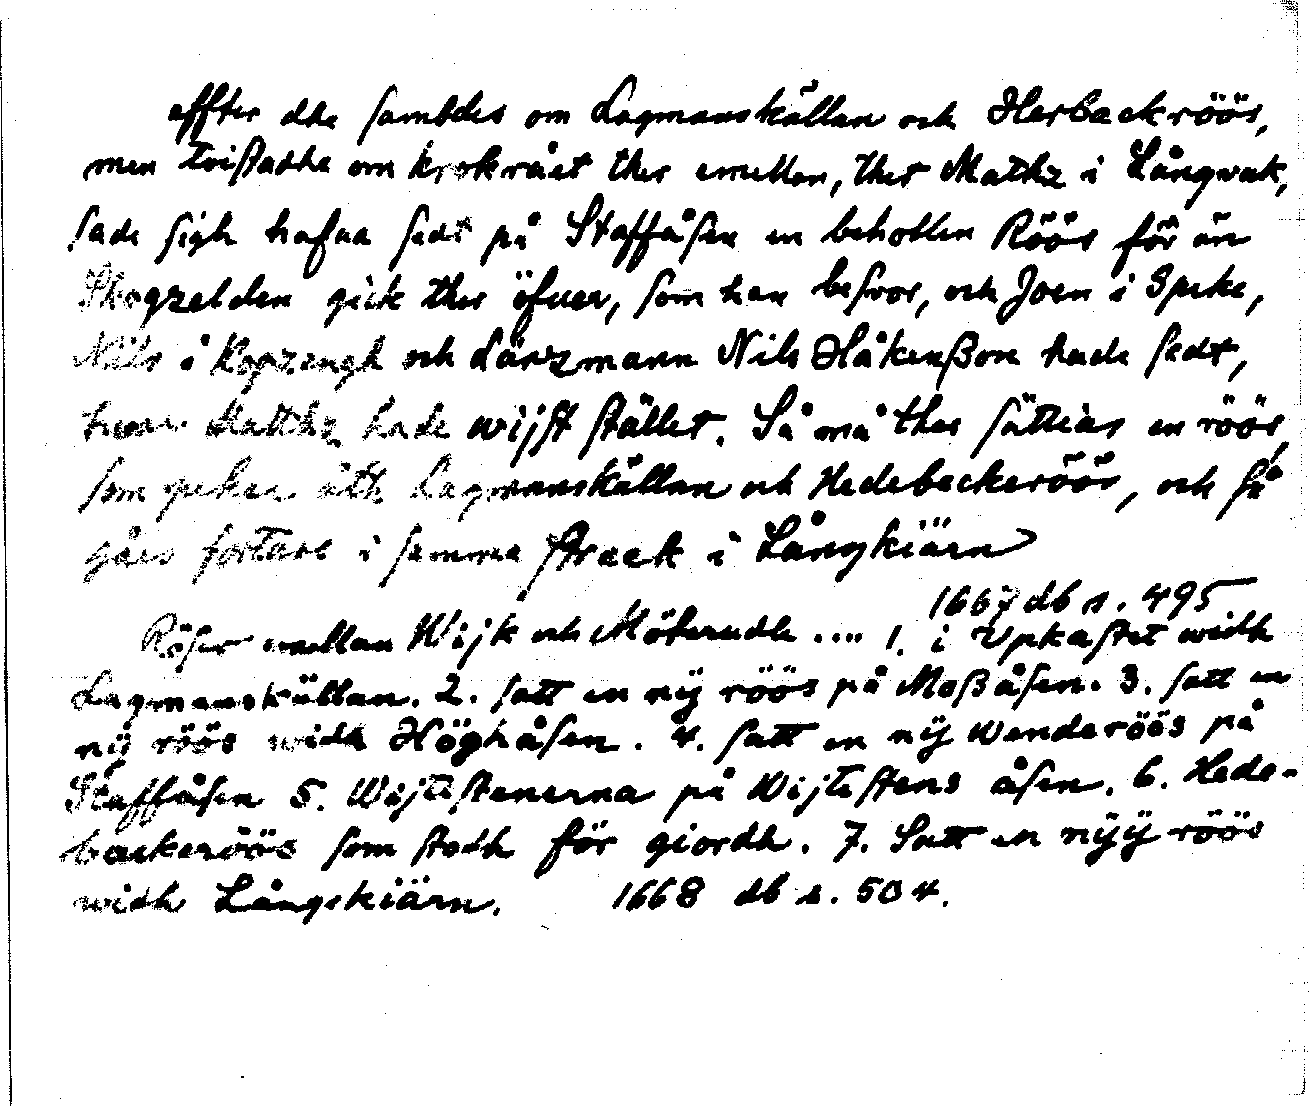 affter dhe sambdes om Lagmanskällan och Herbackröös,
men tvistadhe om krokrået ther emellan, ther Mathz i Långvak,
sade sigh hafua sedt på Staffåsen en behollen Röös för än
Skogzelden gick ther öfuer, som han besvor, och Joen i Speke,
Nils i Kopzengh och Länzmann Nils Håkenßon hade sedt,
huar Matthz hade wijst stället. Så må ther sättias en röös,
som pekar åth Lagmanskällan och Hedebackeröös, och så
gåes fortare i samma strack i Långkiärn
1667 db s. 495.
Röser mellan Wijk och Mökerudh .... 1. i Upkastet widh
Lagmanskällan. 2. satt en nÿ röös på Moßåsen. 3. satt en
nÿ röös widh Höghåsen. 4. satt en nÿ wenderöös på
Staffåsen 5. Wijtestenerna på Wijtestens åsen. 6. Hede-
backeröös som stodh för giordh. 7. Satt en nÿÿ röös
widh Långskiärn. 1668 db s. 504.